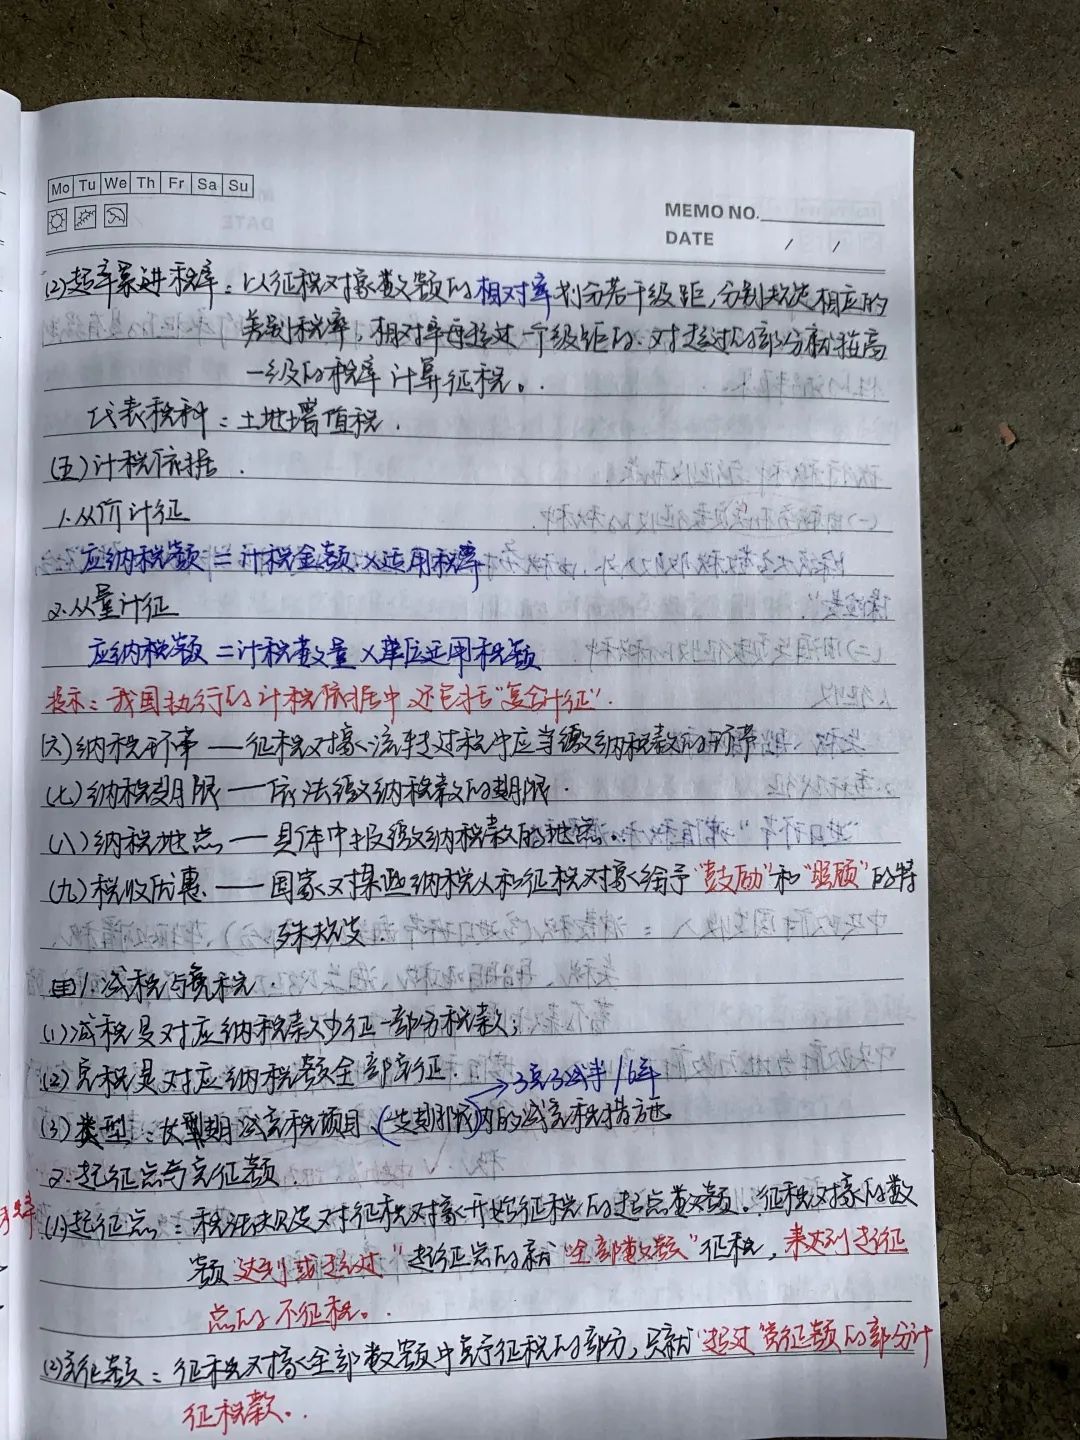 Mo Tu We Th Fr Sa Su
MEMO NO.
DATE / /
(2)超率累进税率：以征税对象数额的相对率划分若干级距，分别规定相应的
差别税率，相对率每超过一个级距的，对超过的部分就按高
一级的税率计算征税。
代表税种：土地增值税.
(五)计税依据.
1.从价计征
应纳税额＝计税金额×适用税率
2.从量计征
应纳税额＝计税数量×单位适用税额
提示：我国执行的计税依据中，还包括“复合计征”.
(六)纳税环节——征税对象流转过程中应当缴纳税款的环节
(七)纳税期限——依法缴纳税款的期限.
(八)纳税地点——具体申报缴纳税款的地点.
(九)税收优惠——国家对某些纳税人和征税对象给予“鼓励”和“照顾”的特
殊规定.
1.减税与免税.
(1)减税是对应纳税款少征一部分税款；
(2)免税是对应纳税额全部免征.
→3免3减半/6年
(3)类型：长期减免税项目、(一定期限)内的减免税措施
2.起征点与免征额.
(1)起征点：税法规定对征税对象开始征税的起点数额。征税对象的数
额达到或超过“起征点的就“全部数额”征税，未达到起征
点的不征税。
(2)免征额：征税对象全部数额中免予征税的部分，只就“超过”免征额的部分计
征税款。